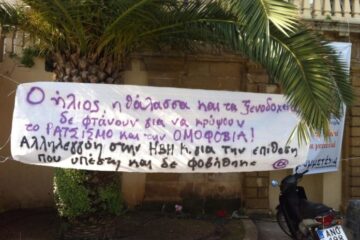 Ο ήλιος, η θάλασσα και τα ξενοδοχεία
δε φτάνουν για να κρύψουν
το ΡΑΤΣΙΣΜΟ και την ΟΜΟΦΟΒΙΑ!
Αλληλεγγύη στην ΗΒΗ Κ. για την επίθεση
που υπέστη και δε φοβήθηκε
ΑΝΟ